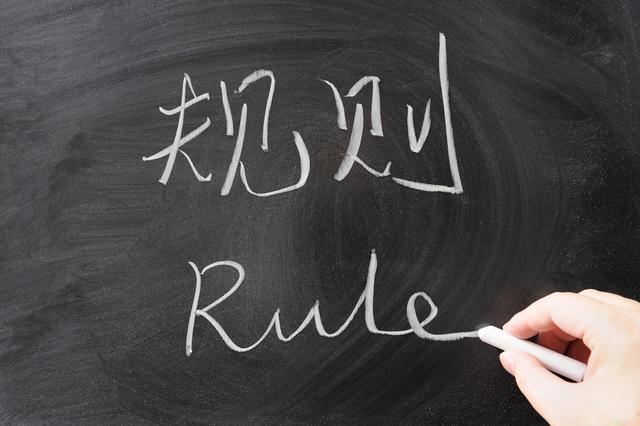 规则
Rule